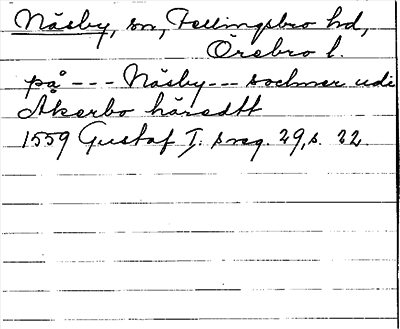 Näsby, sn, Fellingsbro hd,
Örebro l.
på --- Näsby --- sochner udi
Akerbo häredtt
1559 Gustaf I. s reg. 29, s. 22.